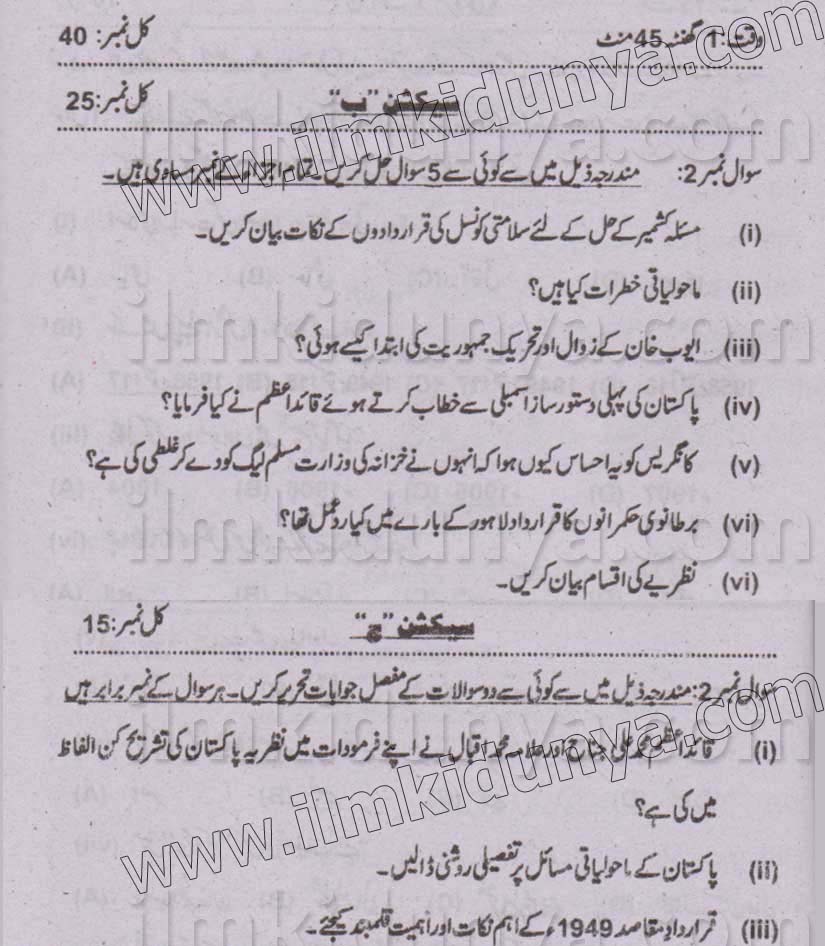 وقت: 1 گھنٹہ 45 منٹ کل نمبر: 40
سیکشن "ب" کل نمبر: 25
سوال نمبر 2: مندرجہ ذیل میں سے کوئی سے 5 سوال حل کریں۔ تمام اجزاء کے نمبر مساوی ہیں۔
(i) مسئلہ کشمیر کے حل کے لئے سلامتی کونسل کی قراردادوں کے نکات بیان کریں۔
(ii) ماحولیاتی خطرات کیا ہیں؟
(iii) ایوب خان کے زوال اور تحریک جمہوریت کی ابتدا کیسے ہوئی؟
(iv) پاکستان کی پہلی دستور ساز اسمبلی سے خطاب کرتے ہوئے قائداعظم نے کیا فرمایا؟
(v) کانگریس کو یہ احساس کیوں ہوا کہ انہوں نے خزانہ کی وزارت مسلم لیگ کو دے کر غلطی کی ہے؟
(vi) برطانوی حکمرانوں کا قرارداد لاہور کے بارے میں کیا ردعمل تھا؟
(vi) نظریے کی اقسام بیان کریں۔
سیکشن "ج" کل نمبر: 15
سوال نمبر 2: مندرجہ ذیل میں سے کوئی سے دو سوالات کے مفصل جوابات تحریر کریں۔ ہر سوال کے نمبر برابر ہیں
(i) قائداعظم محمد علی جناح اور علامہ محمد اقبال نے اپنے فرمودات میں نظریہ پاکستان کی تشریح کن الفاظ
میں کی ہے؟
(ii) پاکستان کے ماحولیاتی مسائل پر تفصیلی روشنی ڈالیں۔
(iii) قرارداد مقاصد 1949ء کے اہم نکات اور اہمیت قلمبند کیجئے۔
www.ilmkidunya.com
www.ilmkidunya.com
ilmkidunya.com
ilmkidunya.com
ilmkidunya.com
ilmkidunya.com
ilmkidunya.com